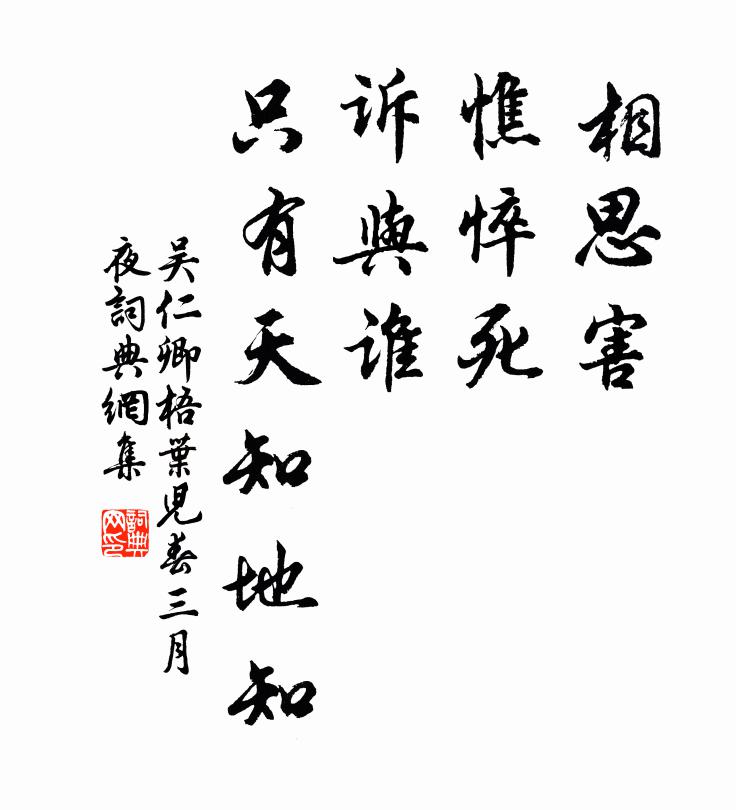 相思害
憔悴死
訴與誰
只有天知地知
吴仁卿梧葉兒春三月
夜詞典網集
詞典
网印